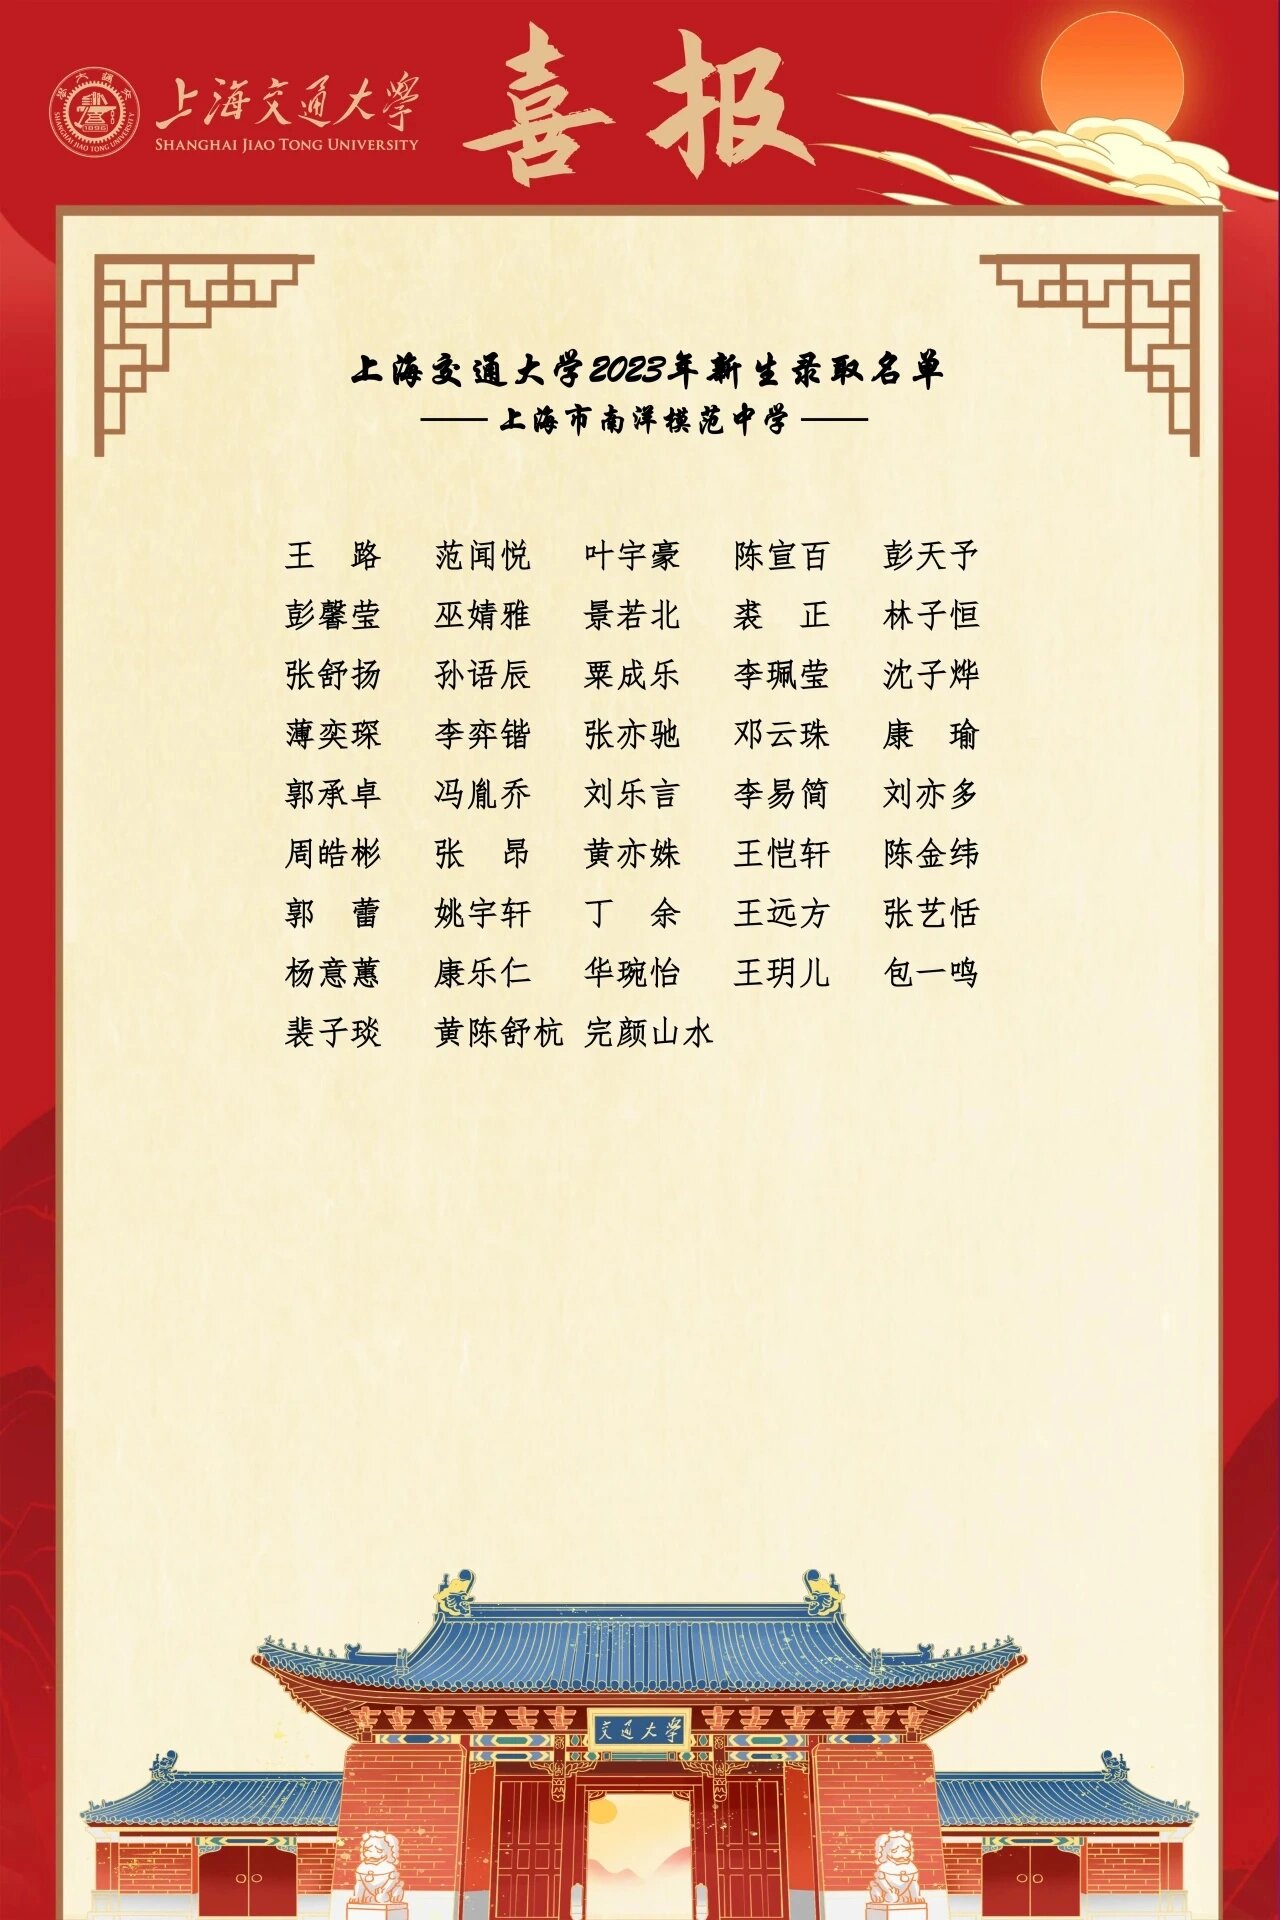 上海交通大学
SHANGHAI JIAO TONG UNIVERSITY
喜报
上海交通大学2023年新生录取名单
——上海市南洋模范中学——
王 路 范闻悦 叶宇豪 陈宣百 彭天予
彭馨莹 巫婧雅 景若北 裘 正 林子恒
张舒扬 孙语辰 粟成乐 李珮莹 沈子烨
薄奕琛 李弈锴 张亦驰 邓云珠 康 瑜
郭承卓 冯胤乔 刘乐言 李易简 刘亦多
周皓彬 张 昂 黄亦姝 王恺轩 陈金纬
郭 蕾 姚宇轩 丁 余 王远方 张艺恬
杨意蕙 康乐仁 华琬怡 王玥儿 包一鸣
裴子琰 黄陈舒杭 完颜山水
交通大学